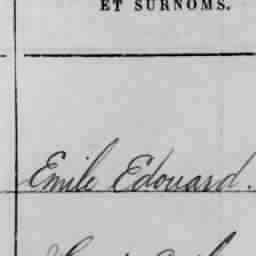 ET SURNOMS.
Emile Edouard.